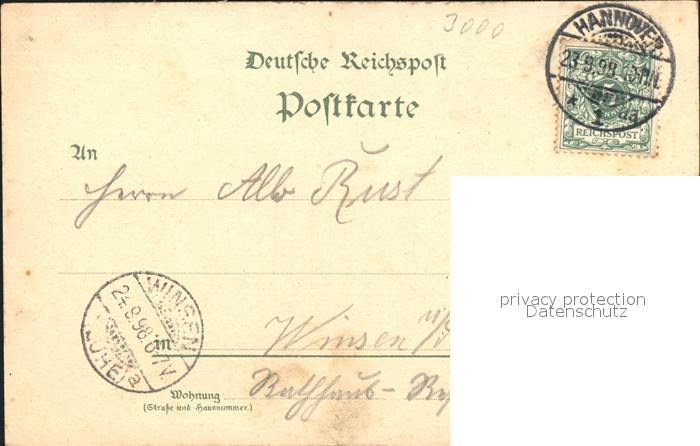 3000
HANNOVER
23.9.98
* 1
REICHSPOST
Deutsche Reichspost
Postkarte
An
Herrn Alb Rust
privacy protection
Datenschutz
WINSEN
24.9.98.6-7V.
LUHE a
in Winsen
Wohnung
(Straße und Hausnummer.)
Rathhaus-